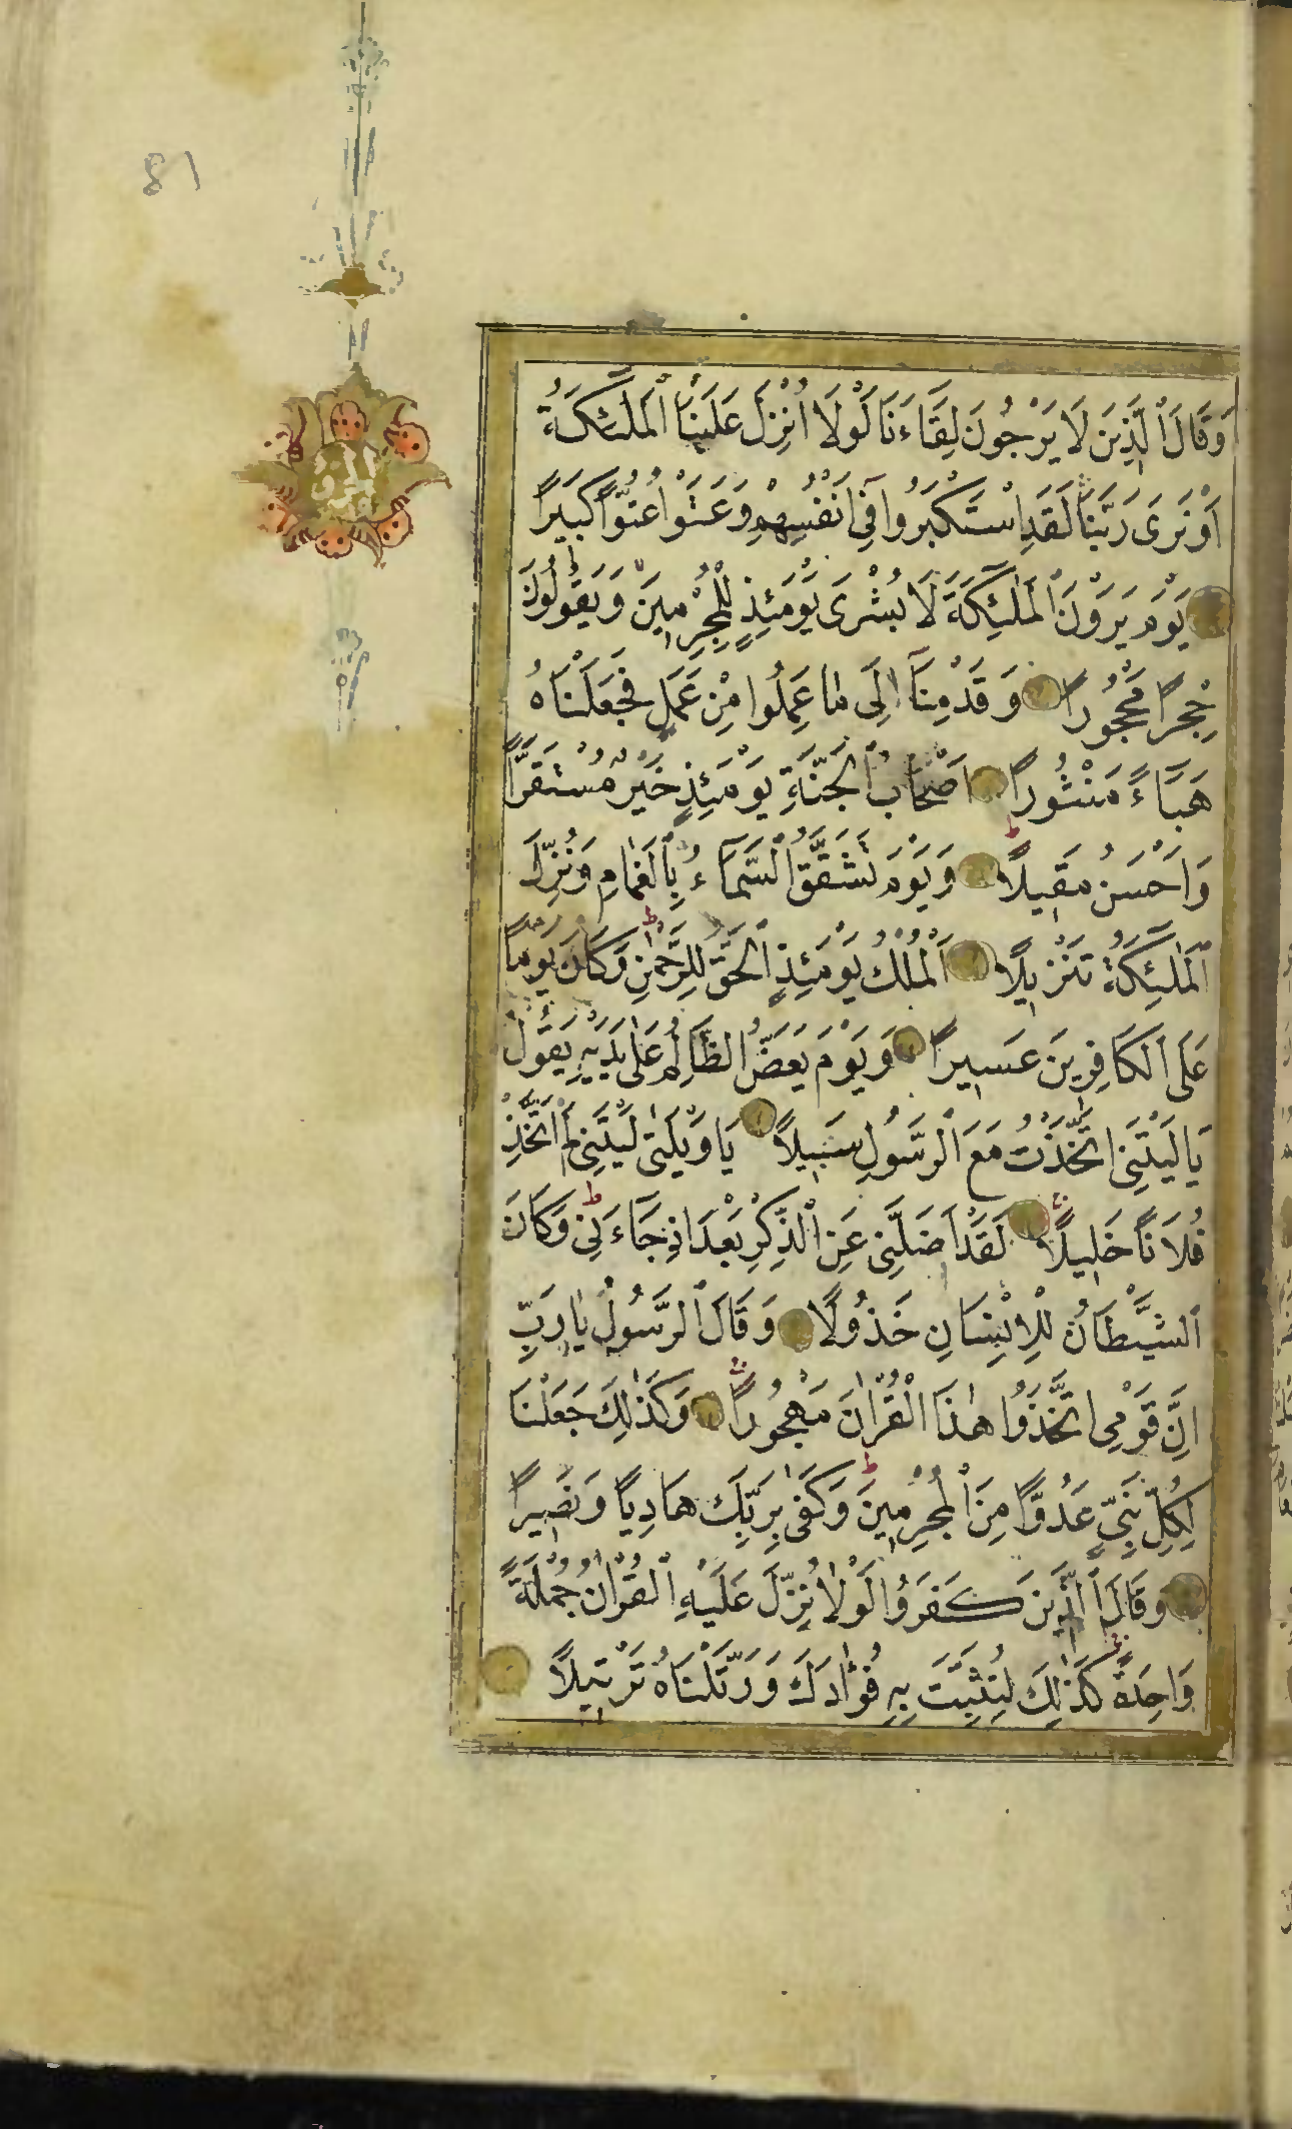 81
وَقَالَ ٱلَّذِينَ لَا يَرْجُونَ لِقَاءَنَا لَوْلَا اُنْزِلَ عَلَيْنَا ٱلْمَلٰئِكَةُ
اَوْ نَرٰى رَبَّنَا لَقَدِ اسْتَكْبَرُوا فِى اَنْفُسِهِمْ وَعَتَوْا عُتُوًّا كَبِيرًا
يَوْمَ يَرَوْنَ ٱلْمَلٰئِكَةَ لَا بُشْرٰى يَوْمَئِذٍ لِلْمُجْرِمِينَ وَيَقُولُونَ
حِجْرًا مَحْجُورًا وَقَدِمْنَا اِلٰى مَا عَمِلُوا مِنْ عَمَلٍ فَجَعَلْنَاهُ
هَبَاءً مَنْثُورًا اَصْحَابُ ٱلْجَنَّةِ يَوْمَئِذٍ خَيْرٌ مُسْتَقَرًّا
وَاَحْسَنُ مَقِيلًا وَيَوْمَ تَشَقَّقُ ٱلسَّمَاءُ بِٱلْغَمَامِ وَنُزِّلَ
ٱلْمَلٰئِكَةُ تَنْزِيلًا اَلْمُلْكُ يَوْمَئِذٍ ٱلْحَقُّ لِلرَّحْمٰنِ وَكَانَ يَوْمًا
عَلَى ٱلْكَافِرِينَ عَسِيرًا وَيَوْمَ يَعَضُّ ٱلظَّالِمُ عَلٰى يَدَيْهِ يَقُولُ
يَا لَيْتَنِى اتَّخَذْتُ مَعَ ٱلرَّسُولِ سَبِيلًا يَا وَيْلَتٰى لَيْتَنِى لَمْ اَتَّخِذْ
فُلَانًا خَلِيلًا لَقَدْ اَضَلَّنِى عَنِ ٱلذِّكْرِ بَعْدَ اِذْ جَاءَنِى وَكَانَ
ٱلشَّيْطَانُ لِلْاِنْسَانِ خَذُولًا وَقَالَ ٱلرَّسُولُ يَا رَبِّ
اِنَّ قَوْمِى اتَّخَذُوا هٰذَا الْقُرْاٰنَ مَهْجُورًا وَكَذٰلِكَ جَعَلْنَا
لِكُلِّ نَبِىٍّ عَدُوًّا مِنَ ٱلْمُجْرِمِينَ وَكَفٰى بِرَبِّكَ هَادِيًا وَنَصِيرًا
وَقَالَ ٱلَّذِينَ كَفَرُوا لَوْلَا نُزِّلَ عَلَيْهِ ٱلْقُرْاٰنُ جُمْلَةً
وَاحِدَةً كَذٰلِكَ لِنُثَبِّتَ بِهِ فُؤَادَكَ وَرَتَّلْنَاهُ تَرْتِيلًا